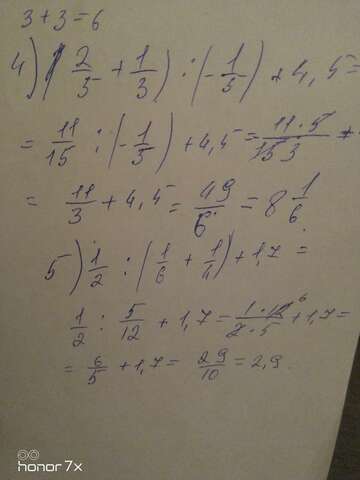 3+3=6
4) (2/5 + 1/3) : (-1/5) + 4,5 =
= 11/15 : (-1/5) + 4,5 = 11·5/15 3 +
= 11/3 + 4,5 = 49/6 = 8 1/6
5) 1/2 : (1/6 + 1/4) + 1,7 =
1/2 : 5/12 + 1,7 = 1·12 6/2·5 + 1,7 =
= 6/5 + 1,7 = 29/10 = 2,9.
honor 7x